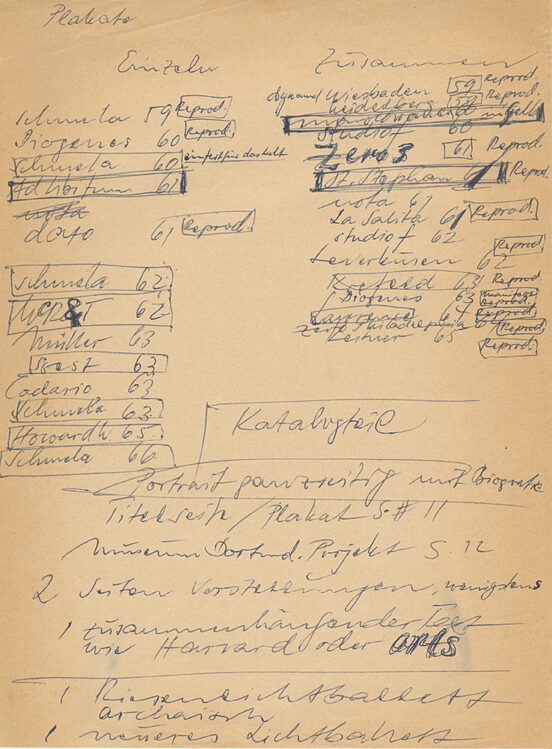 Plakate
Einzeln
Schmela 59 Reprod.
Diogenes 60 Reprod.
Schmela 60
Ad libitum 61
nota
dato 61 Reprod.
Schmela 62
62
Müller 63
63
Cadario 63
Schmela 63
Howard W. 65
Schmela 66
Zusammen
dynamo Wiesbaden 59 Reprod.
Heidelberg 58 Reprod.
studio f 60
Zero 3 61 Reprod.
St. Stephan 61 Reprod.
nota 61
La Salita 61 Reprod.
studio f 62
Leverkusen 62 Reprod.
Krefeld 63 Reprod.
Diogenes 63
64 Reprod.
Zero Philadelphia 64 Reprod.
Lestner 65 Reprod.
Katalogteil
Portrait ganzseitig mit Biografie
Titelseite / Plakat S. # 11
Museum Dortmund. Projekt S. 12
2 Seiten Vorstellungen, wenigstens
1 zusammenhängender Text
wie Harvard oder arts
1 Riesenlichtballett
archaisch
1 neueres Lichtballett